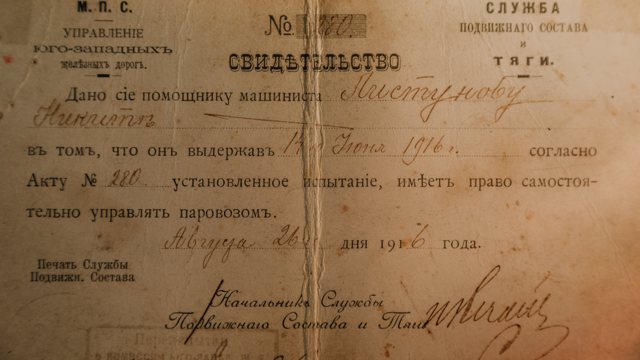 М. П. С.
УПРАВЛЕНІЕ
ЮГО-ЗАПАДНЫХЪ
желѣзныхъ дорогъ.
СЛУЖБА
ПОДВИЖНАГО СОСТАВА
и
ТЯГИ.
№ 280.
СВИДѢТЕЛЬСТВО
Дано сіе помощнику машиниста Листунову
Никитѣ
въ томъ, что онъ выдержавъ 17го Іюня 1916 г. согласно
Акту № 280 установленное испытаніе, имѣетъ право самостоя-
тельно управлять паровозомъ.
Августа 26го дня 1916 года.
Печать Службы
Подвижн. Состава
Начальникъ Службы
Подвижнаго Состава и Тяги